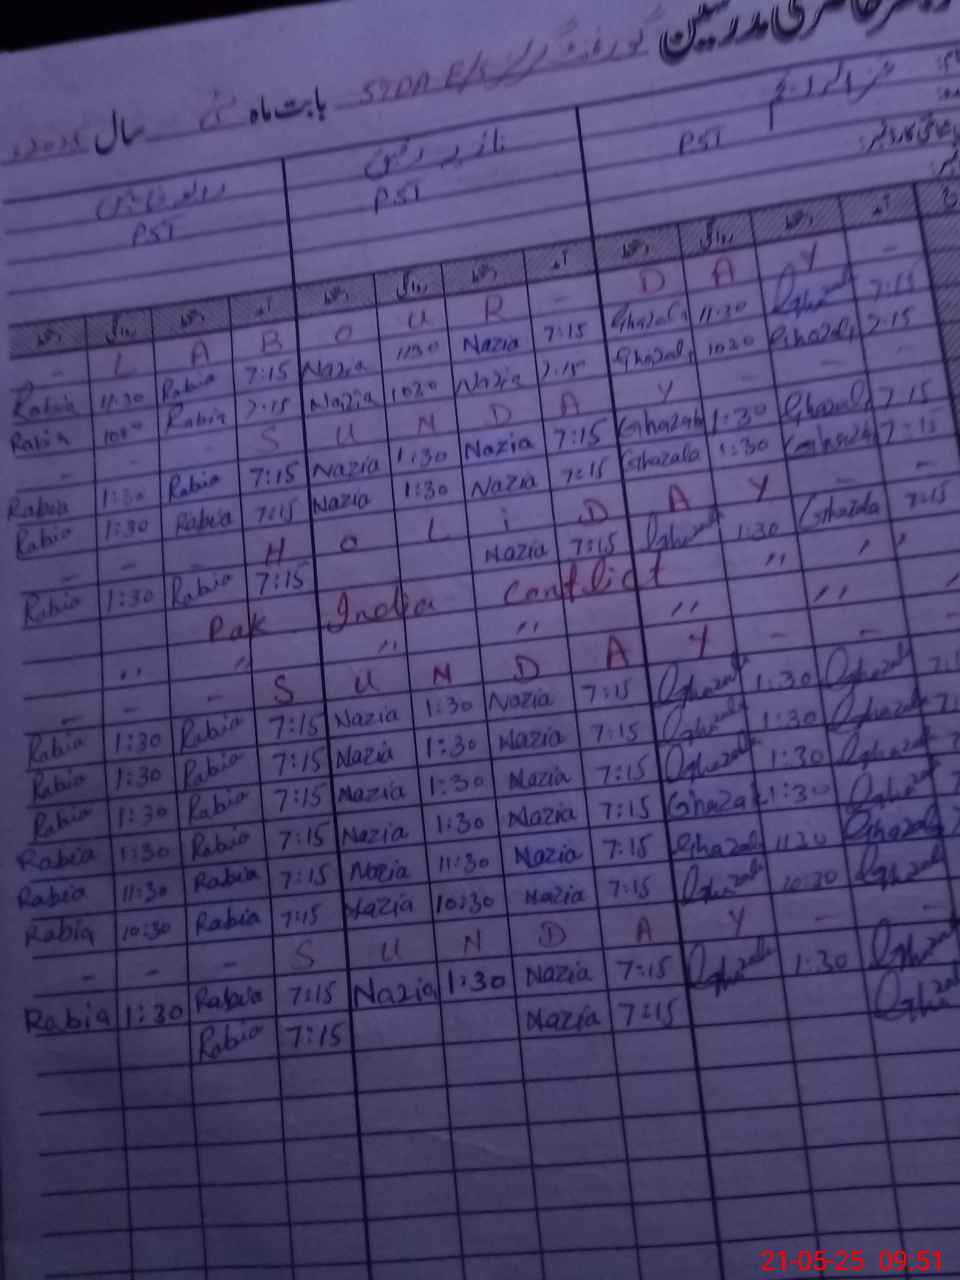 مدرسین
بابت ماہ مئی سال 2025
PST PST PST
- L A B O U R - D A Y -
Rabia 11:30 Rabia 7:15 Nazia 11:30 Nazia 7:15 Ghazala 11:30 Ghazala 7:15
Rabia Rabia 7:15 Nazia 1030 Nazia 7:15 Ghazala 1030 Ghazala 7:15
- - - S U N D A Y - - -
Rabia 1:30 Rabia 7:15 Nazia 1:30 Nazia 7:15 Ghazala 1:30 Ghazala 7:15
Rabia 1:30 Rabia 7:15 Nazia 1:30 Nazia 7:15 Ghazala 1:30 Ghazala 7:15
- - - H O L i D A Y - -
Rabia 1:30 Rabia 7:15 Nazia 7:15 Ghazala 1:30 Ghazala 7:15
Pak India Conflict " "
" " " " " "
- - - S U N D A Y - - -
Rabia 1:30 Rabia 7:15 Nazia 1:30 Nazia 7:15 Ghazala 1:30 Ghazala
Rabia 1:30 Rabia 7:15 Nazia 1:30 Nazia 7:15 Ghazala 1:30 Ghazala
Rabia 1:30 Rabia 7:15 Nazia 1:30 Nazia 7:15 Ghazala 1:30 Ghazala
Rabia 1:30 Rabia 7:15 Nazia 1:30 Nazia 7:15 Ghazala 1:30 Ghazala
Rabia 11:30 Rabia 7:15 Nazia 11:30 Nazia 7:15 Ghazala 11:30 Ghazala
Rabia 10:30 Rabia 7:15 Nazia 10:30 Nazia 7:15 Ghazala 10:30 Ghazala
- - - S U N D A Y - -
Rabia 1:30 Rabia 7:15 Nazia 1:30 Nazia 7:15 Ghazala 1:30 Ghazala
Rabia 7:15 Nazia 7:15 Ghazala
21-05-25 09:51